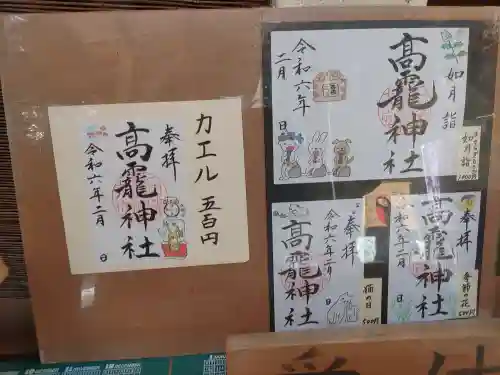 カエル 五百円
奉拝
高龗神社
令和六年二月
日
如月詣
高龗神社
令和六年
二月
日
如月詣
奉拝
高龗神社
令和六年二月
日
猫の日
500円
奉拝
高龗神社
令和六年二月
日
季節の花
500円